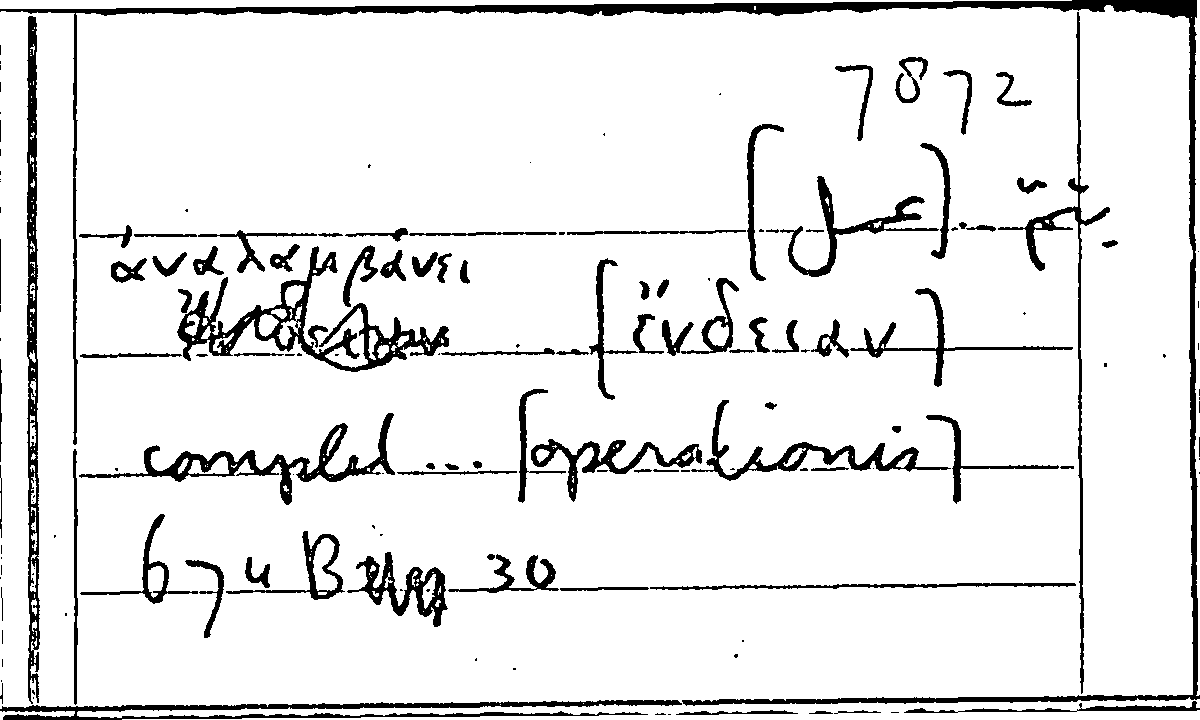 7872
ἀναλαμβάνει
... [ἔνδειαν]
complet ... [operationis]
674 B 30